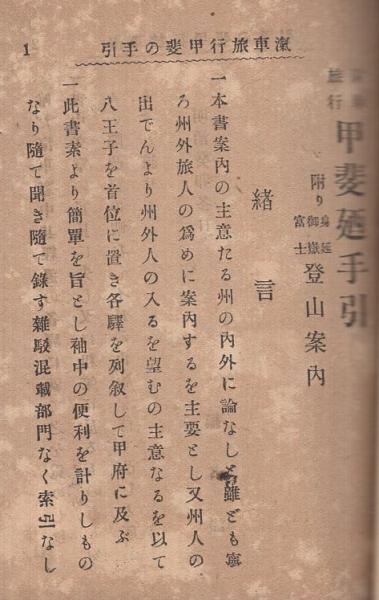 1　引手の斐甲行旅車滊
旅行
甲斐廼手引
附り
身延
御嶽
富士
登山案内
緒言
一本書案內の主意たる州の內外に論なしと雖ども寧
ろ州外旅人の爲めに案內するを主要とし又州人の
出でんより州外人の入るを望むの主意なるを以て
八王子を首位に置き各驛を列叙して甲府に及ぶ
一此書素より簡單を旨とし袖中の便利を計りしもの
なり隨て聞き隨て錄す雜駁混載部門なく索引なし